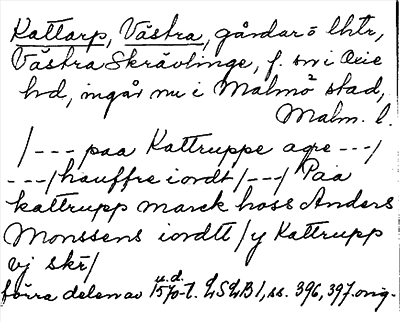 Kattarp, Västra, gårdar o lhtr,
Västra Skrävlinge, f. sn i Oxie
hd, ingår nu i Malmö stad,
Malm. l.
/--- paa Kattruppe agre ---/
---/ hauffre iordt /---/ Paa
kattrupp marck hoss Anders
Monssens iordtt /y Kattrupp
vj skr/
förra delen av 1570-t. u.d. LSLB 1, ss. 396, 397. orig.